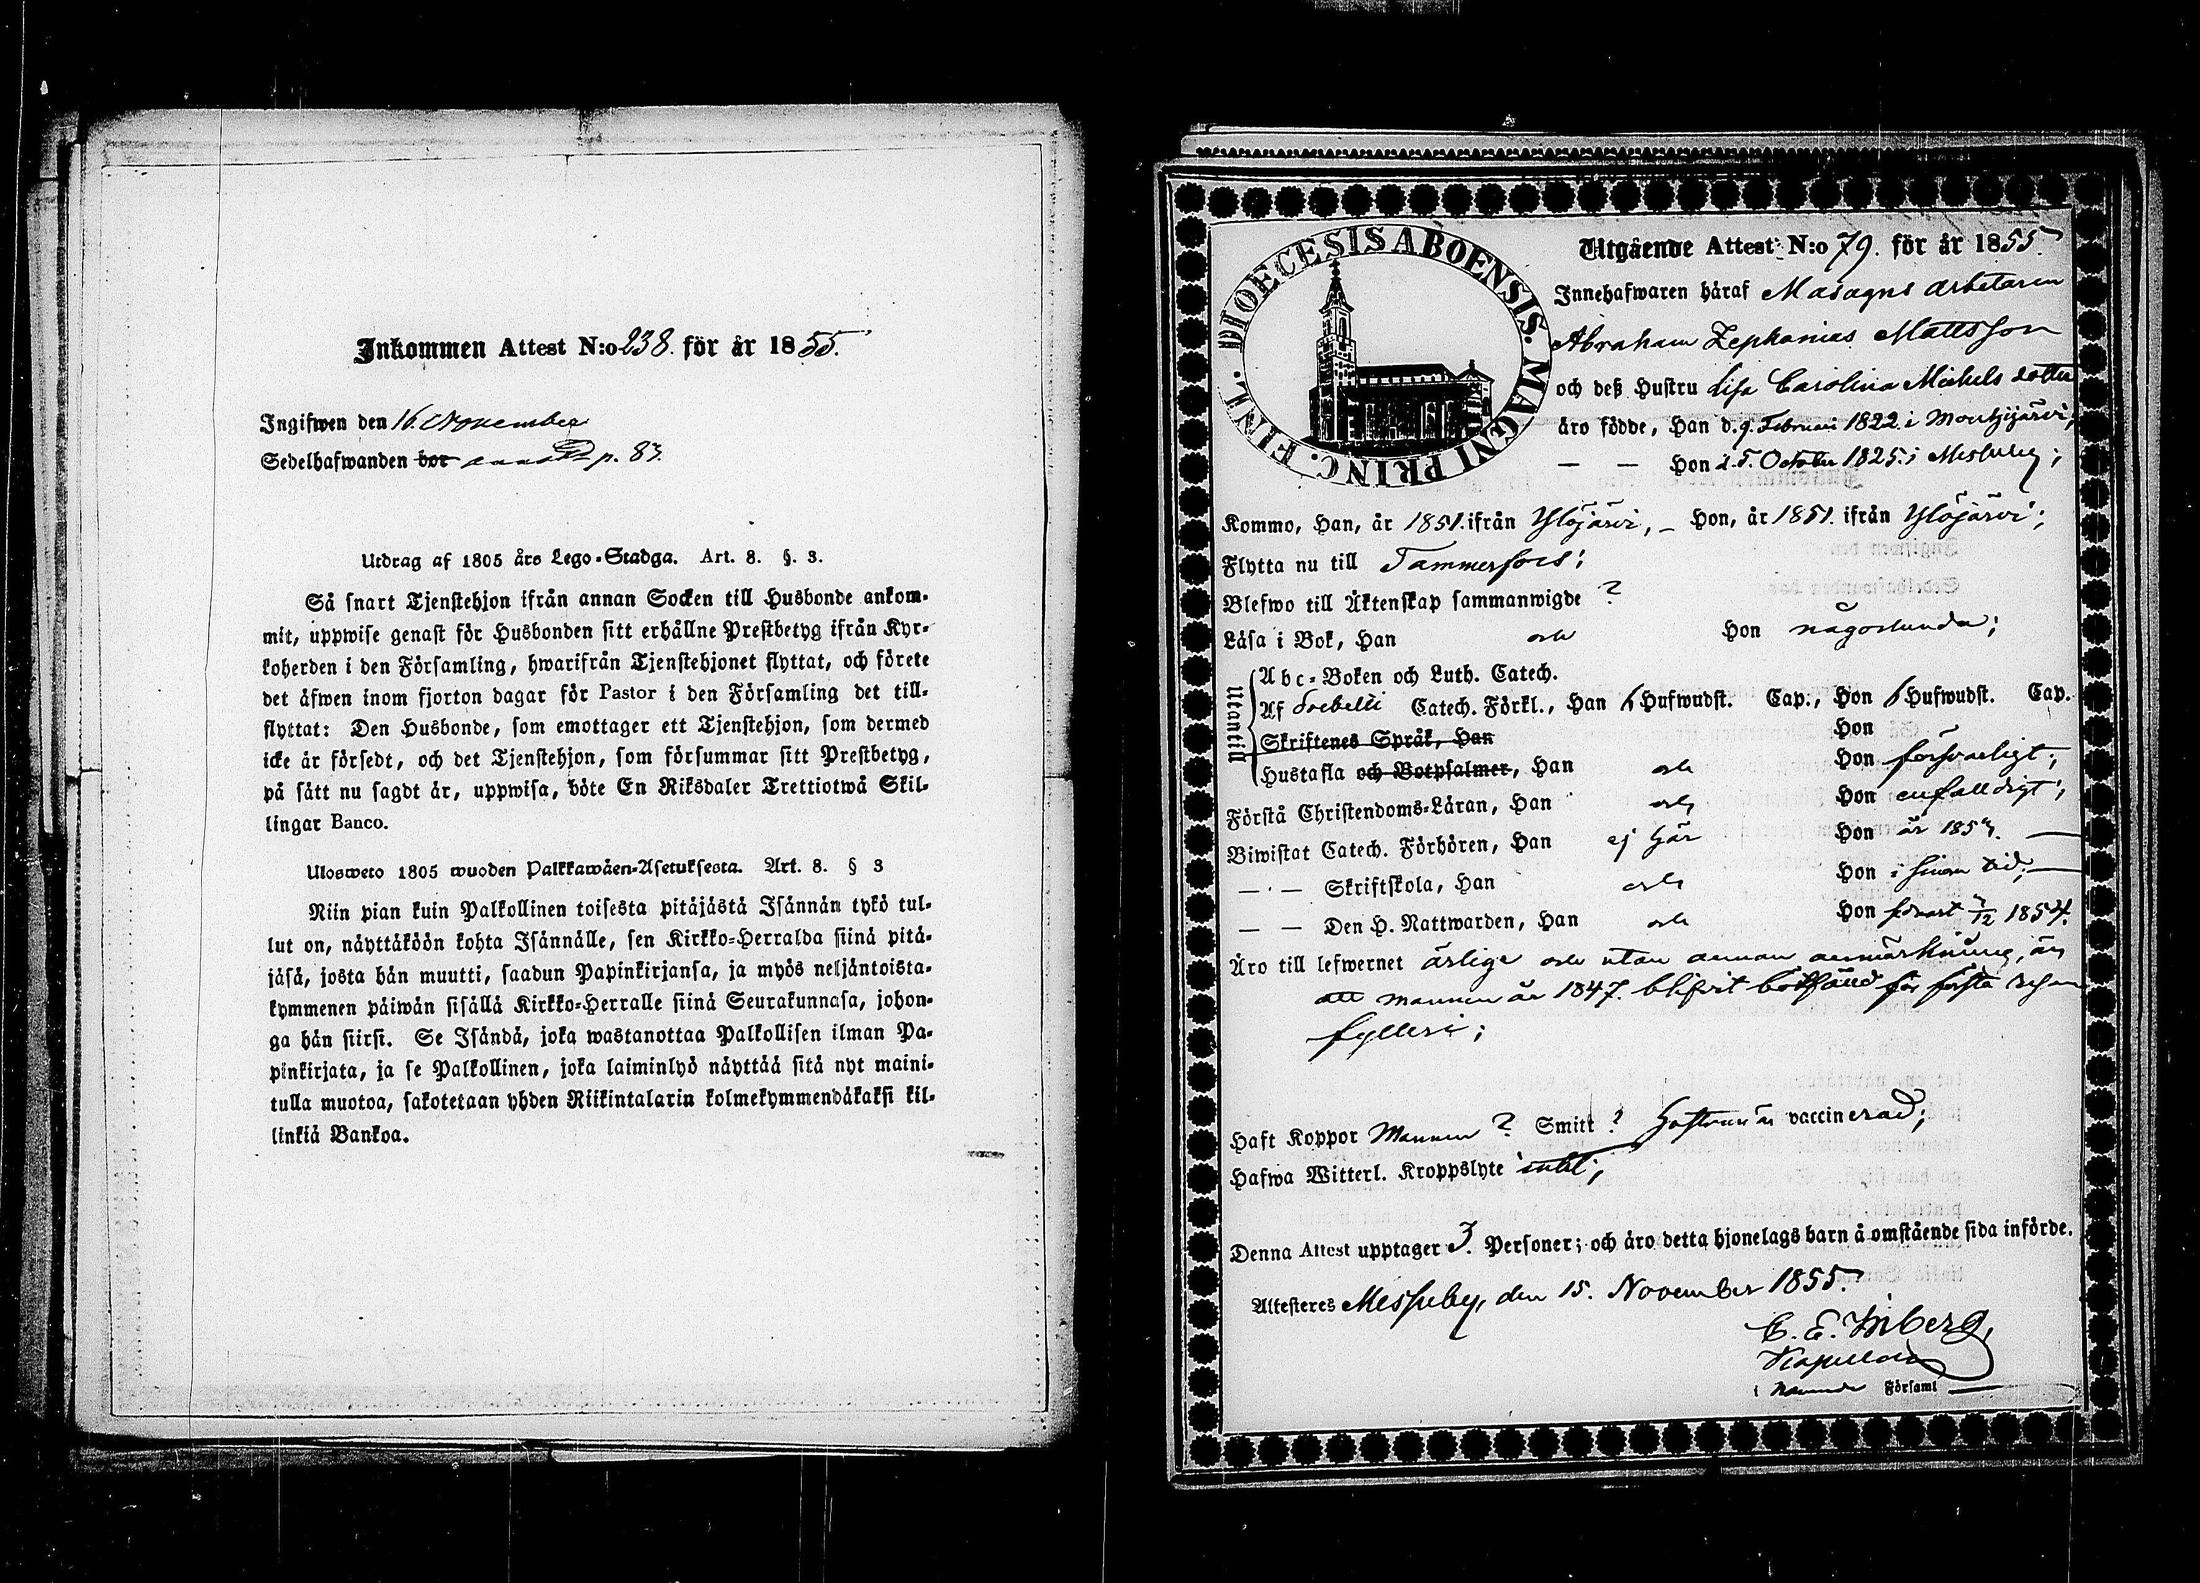 Inkommen Attest N:o 238. för år 1855.
Ingifwen den 16. November
Sedelhafwanden bor p. 83.
Utdrag af 1805 års Lego-Stadga. Art. 8. §. 3.
Så snart Tjenstehjon ifrån annan Socken till Husbonde ankom-
mit, uppwise genast för Husbonden sitt erhållne Prestbetyg ifrån Kyr-
koherden i den Församling, hwarifrån Tjenstehjonet flyttat, och förete
det äfwen inom fjorton dagar för Pastor i den Församling det till-
flyttat: Den Husbonde, som emottager ett Tjenstehjon, som dermed
icke är försedt, och det Tjenstehjon, som försummar sitt Prestbetyg,
på sätt nu sagdt är, uppwisa, böte En Riksdaler Trettiotwå Skil-
lingar Banco.
Ulosweto 1805 wuoden Palkkawäen-Asetuksesta. Art. 8. § 3
Niin pian kuin Palkollinen toisesta pitäjästä Isännän tykö tul-
lut on, näyttäköön kohta Isännälle, sen Kirkko-Herralda siinä pitä-
jäsä, josta hän muutti, saadun Papinkirjansa, ja myös neljäntoista-
kymmenen päiwän sisällä Kirkko-Herralle siinä Seurakunnasa, johon-
ga hän siirsi. Se Isändä, joka wastanottaa Palkollisen ilman Pa-
pinkirjata, ja se Palkollinen, joka laiminlyö näyttää sitä nyt maini-
tulla muotoa, sakotetaan yhden Riikintalarin kolmekymmendäkaksi kil-
linkiä Bankoa.
DIOECESIS ABOENSIS. MAGNI PRINC. FINL.
Utgående Attest N:o 79. för år 1855.
Innehafwaren häraf Masugns arbetaren
Abraham Zephanias Mattsson
och deß Hustru Lisa Carolina Michels dotter
äro födde, Han d. 9. Februari 1822. i Mouhijärvi;
— — Hon d. 5. October 1825. i Messuby;
Kommo, Han, år 1851. ifrån Ylöjärvi, – Hon, år 1851. ifrån Ylöjärvi;
Flytta nu till Tammerfors;
Blefwo till Äktenskap sammanwigde ?
Läsa i Bok, Han och Hon någorlunda;
Utantill
Abc-Boken och Luth. Catech.
Af Svebelii Catech. Förkl., Han 6 Hufwudst. Cap., Hon 6 Hufwudst. Cap.
Skriftenes Språk, Han Hon
Hustafla och Botpsalmer, Han och Hon försvarligt;
Förstå Christendoms-Läran, Han och Hon enfalldigt;
Biwistat Catech. Förhören, Han ej här Hon år 1854. —
— · — Skriftskola, Han och Hon i sinom tid; —
— — Den H. Nattwarden, Han och Hon 1854.
Äro till lefwernet ärlige och utan annan anmärkning, än
att mannen år 1847. blifvit botfälld för första resan
fylleri;
Haft Koppor Mannen ? Smitt ? Hustrun är vaccinerad;
Hafwa Witterl. Kroppslyte intet;
Denna Attest upptager 3. Personer; och äro detta hjonelags barn å omstående sida införde.
Attesteres Messuby, den 15. November 1855.
C. E. Inberg,
Kapellan
i nämnde Församl